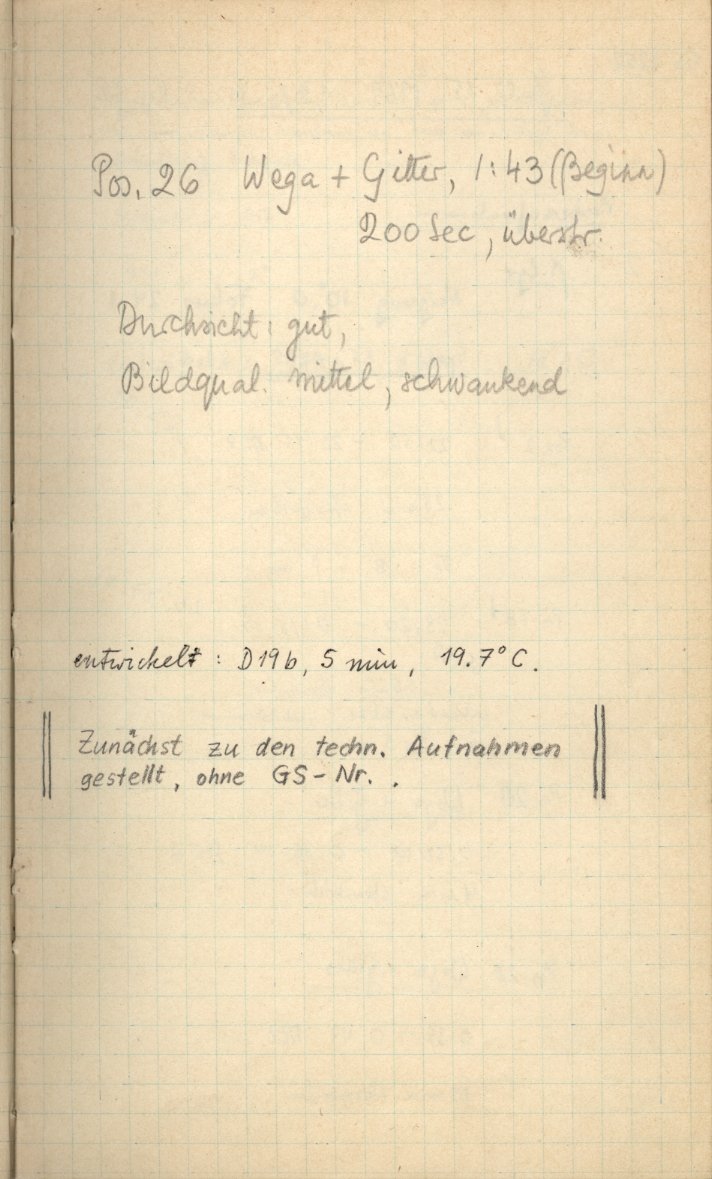 Pos. 26 Wega + Gitter, 1:43 (Beginn)
200 Sec, überstr.
Durchsicht: gut,
Bildqual. mittel, schwankend
entwickelt: D19b, 5 min, 19.7°C.
Zunächst zu den techn. Aufnahmen
gestellt, ohne GS-Nr. .